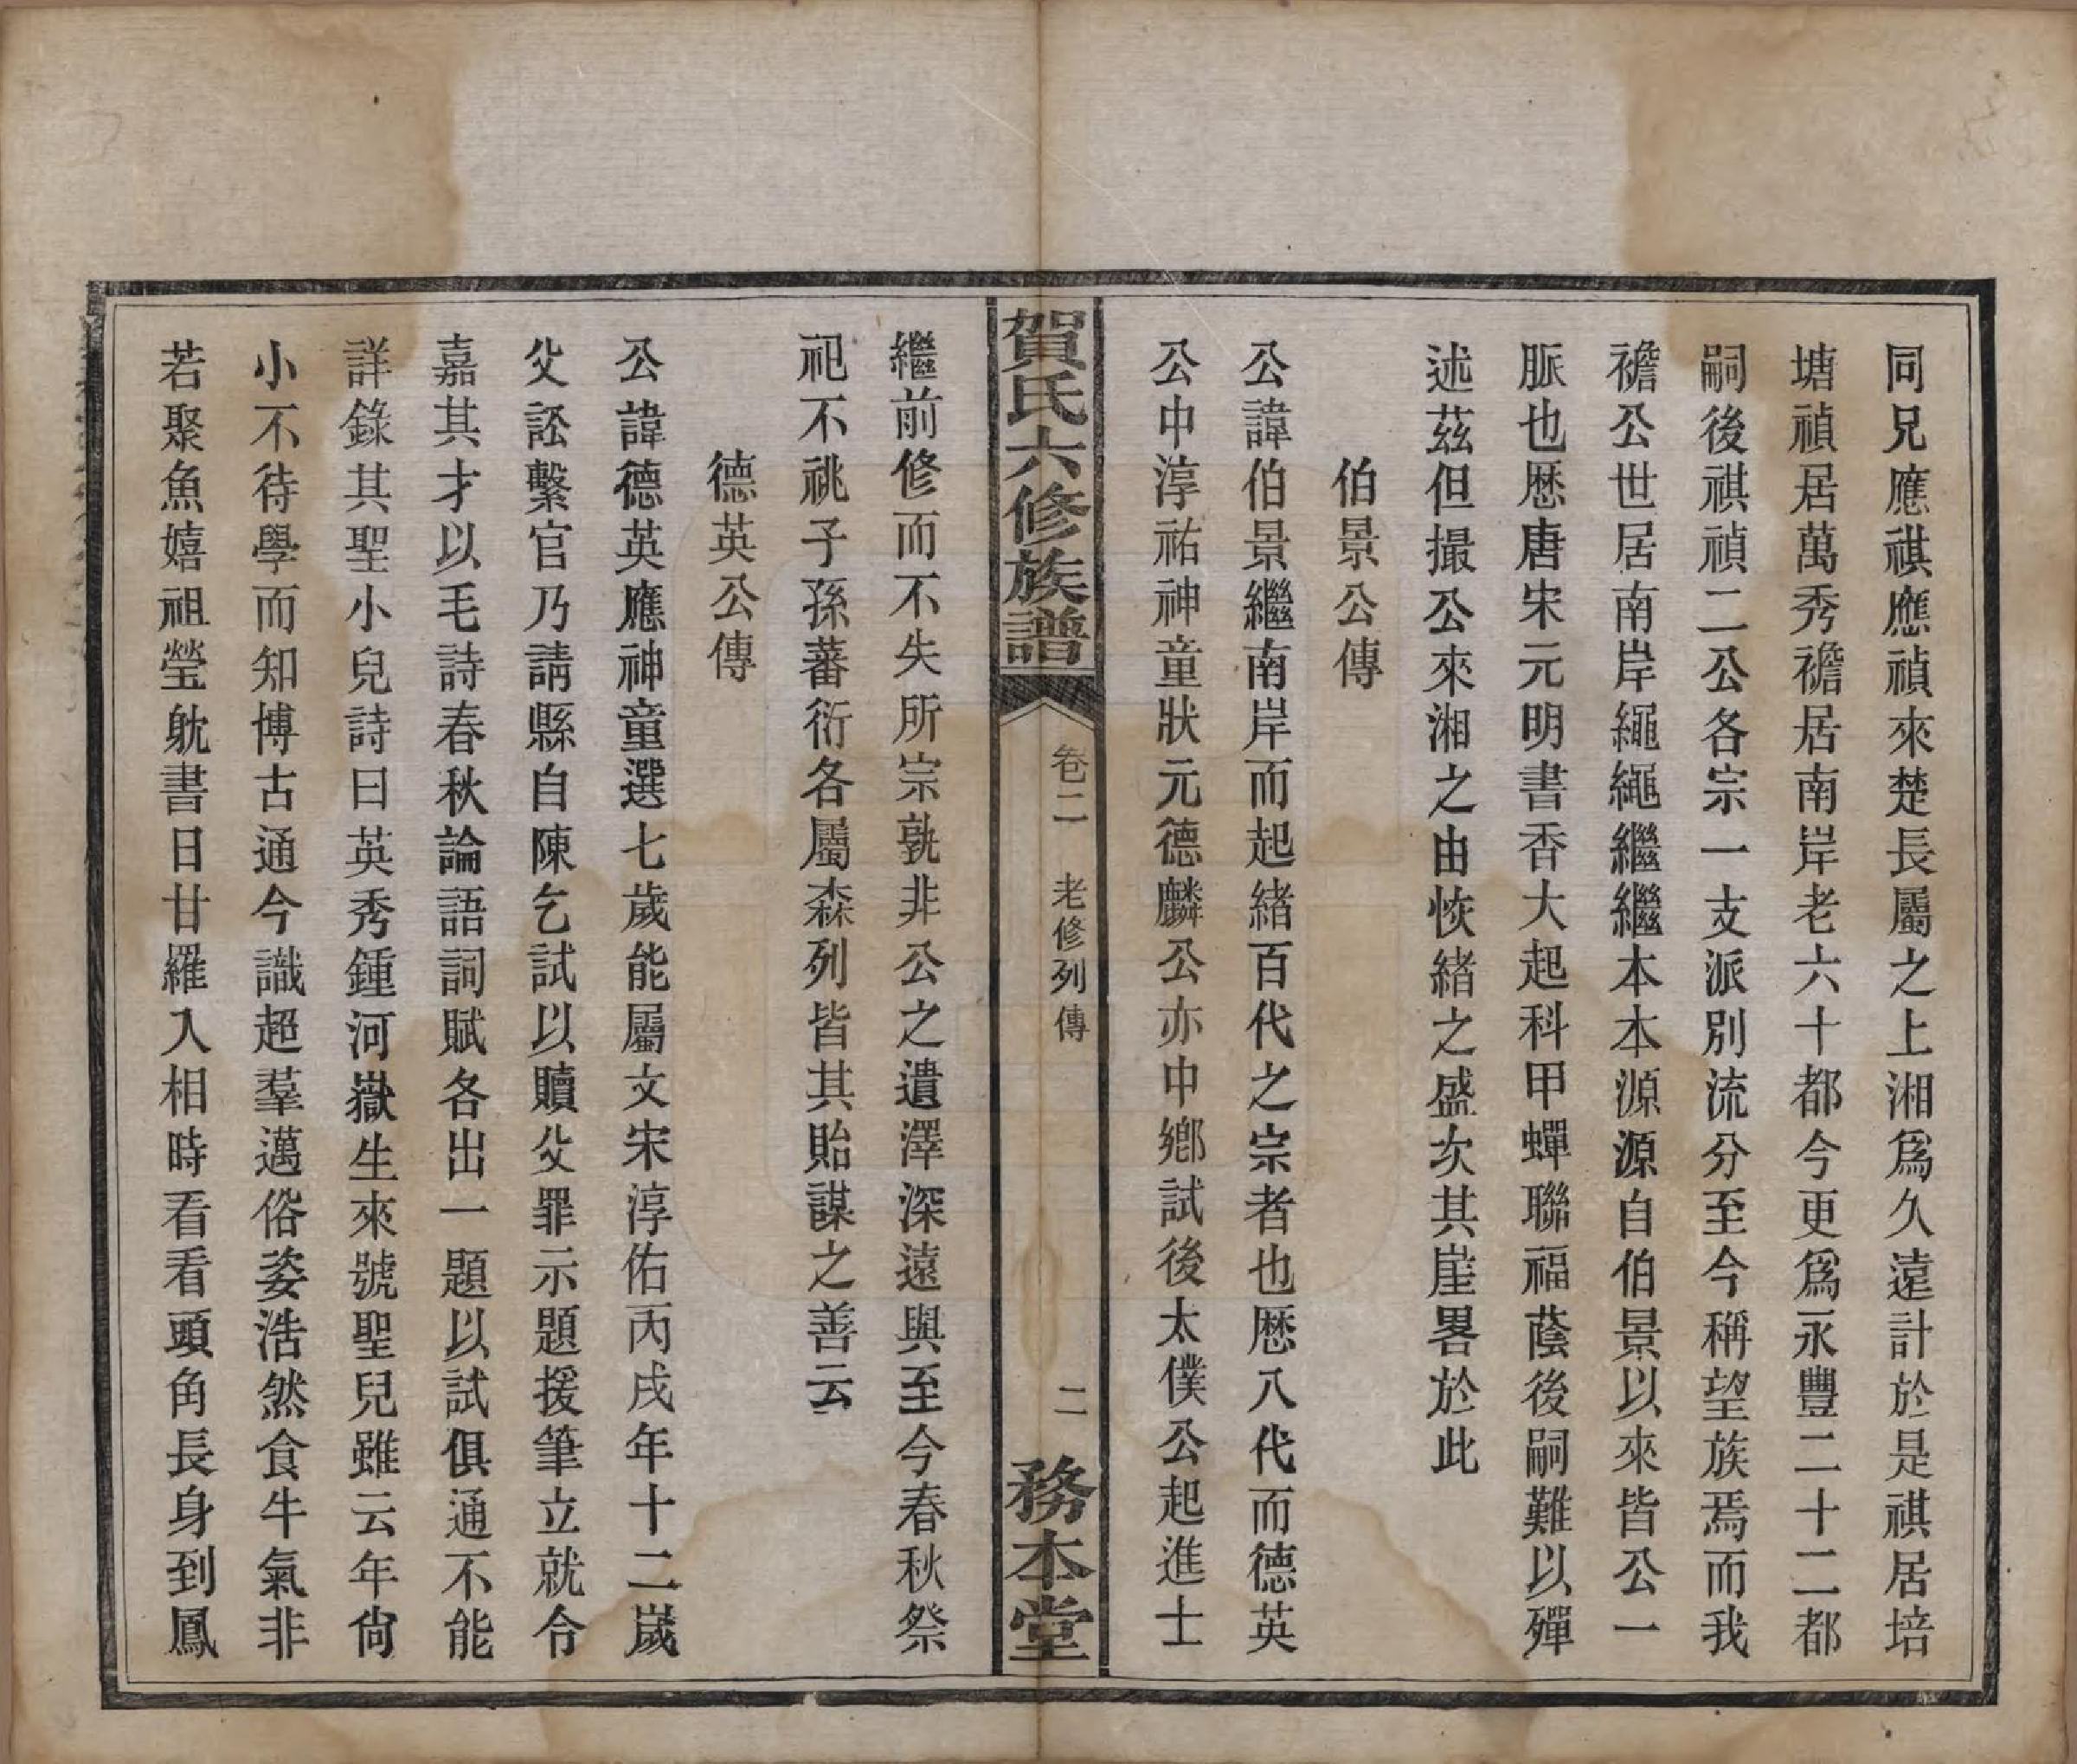 同兄應祺應禎來楚長屬之上湘爲久遠計於是祺居培
塘禎居萬秀襜居南岸老六十都今更爲永豐二十二都
嗣後祺禎二公各宗一支派別流分至今稱望族焉而我
襜公世居南岸繩繩繼繼本本源源自伯景以來皆公一
脈也歷唐宋元明書香大起科甲蟬聯福蔭後嗣難以殫
述茲但撮公來湘之由恢緒之盛次其崖畧於此
伯景公傳
公諱伯景繼南岸而起緒百代之宗者也歷八代而德英
公中淳祐神童狀元德麟公亦中鄉試後太僕公起進士
賀氏六修族譜
卷二 老修列傳
二
務本堂
繼前修而不失所宗孰非公之遺澤深遠與至今春秋祭
祀不祧子孫蕃衍各屬森列皆其貽謀之善云
德英公傳
公諱德英應神童選七歲能屬文宋淳佑丙戌年十二歲
父訟繫官乃請縣自陳乞試以贖父罪示題援筆立就令
嘉其才以毛詩春秋論語詞賦各出一題以試俱通不能
詳錄其聖小兒詩曰英秀鍾河嶽生來號聖兒雖云年尙
小不待學而知博古通今識超羣邁俗姿浩然食牛氣非
若聚魚嬉祖瑩躭書日甘羅入相時看看頭角長身到鳳